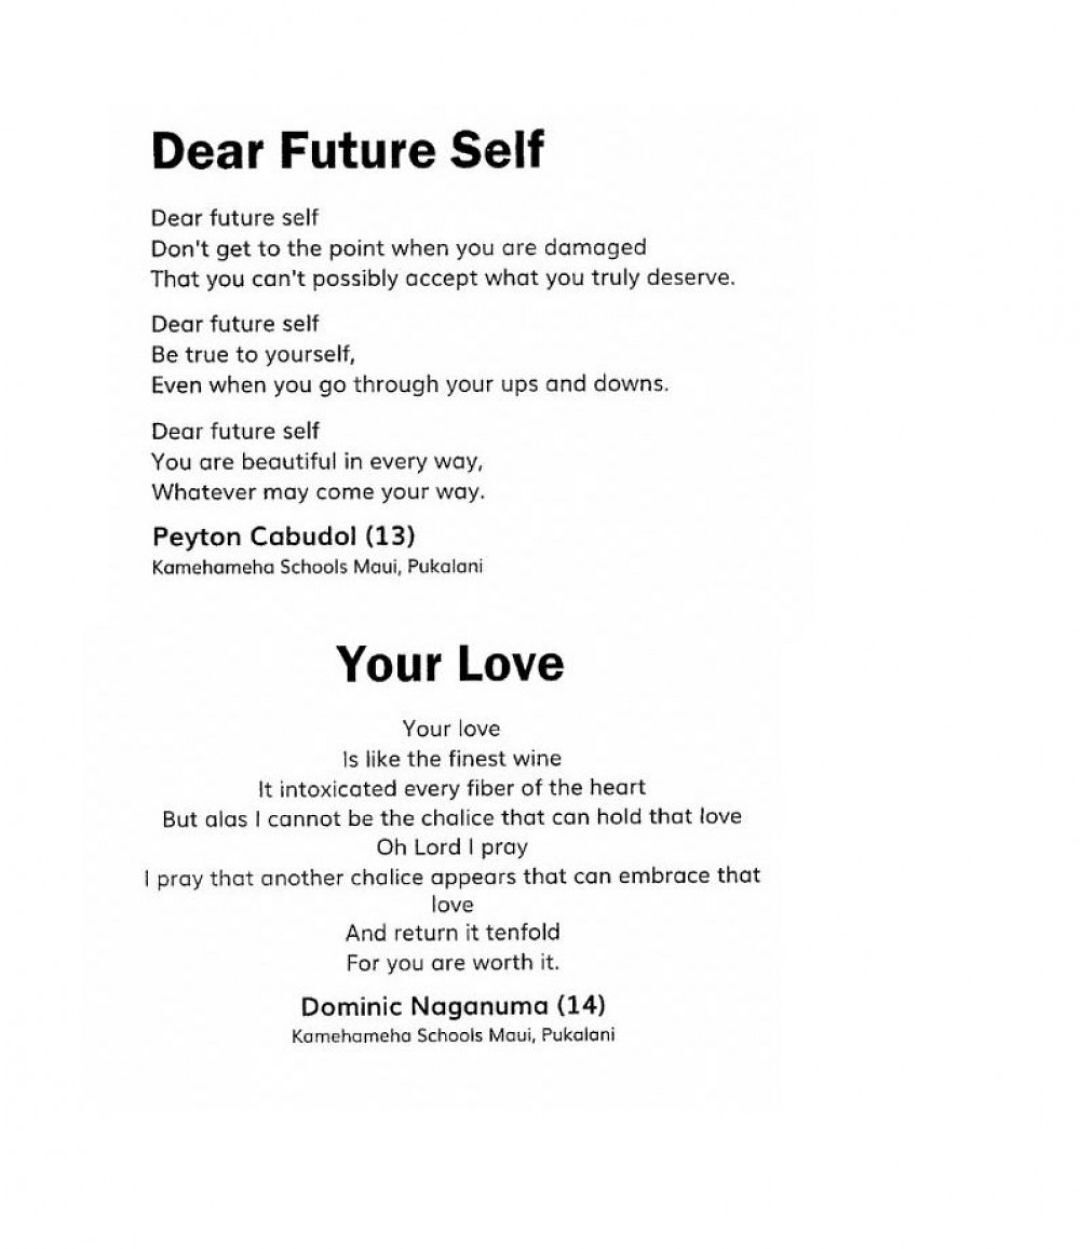 Dear Future Self
Dear future self
Don't get to the point when you are damaged
That you can't possibly accept what you truly deserve.
Dear future self
Be true to yourself,
Even when you go through your ups and downs.
Dear future self
You are beautiful in every way,
Whatever may come your way.
Peyton Cabudol (13)
Kamehameha Schools Maui, Pukalani
Your Love
Your love
Is like the finest wine
It intoxicated every fiber of the heart
But alas I cannot be the chalice that can hold that love
Oh Lord I pray
I pray that another chalice appears that can embrace that
love
And return it tenfold
For you are worth it.
Dominic Naganuma (14)
Kamehameha Schools Maui, Pukalani